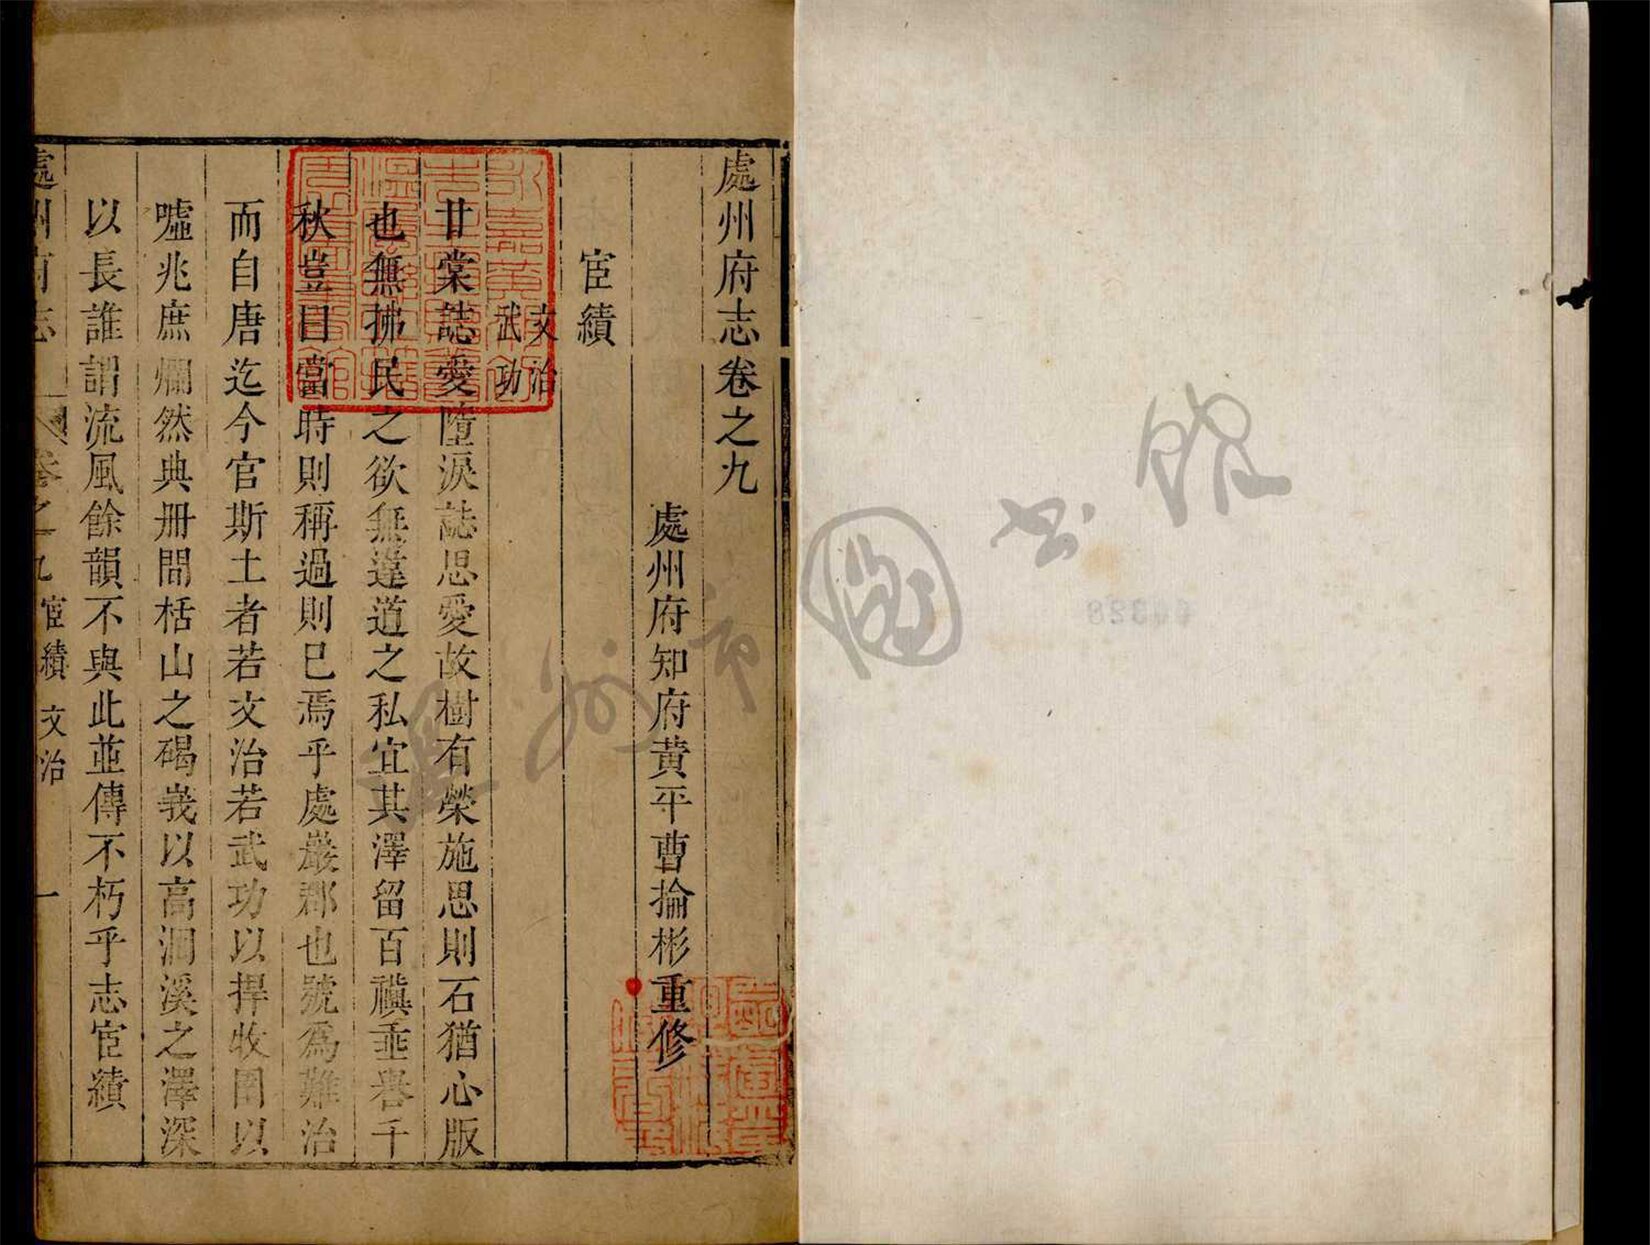 處州府志卷之九
處州府知府黄平曹掄彬重修
宦績
文治
武功
甘棠誌愛墮淚誌思愛故樹有榮施思則石猶心版
也無拂民之欲無違道之私宜其澤留百禩垂譽千
秋豈曰當時則稱過則已焉乎處巖郡也號爲難治
而自唐迄今官斯土者若文治若武功以捍牧圉以
噓兆庶爛然典册間栝山之碣峩以高洄溪之澤深
以長誰謂流風餘韻不與此並傳不朽乎志宦績
處州府志
卷之九
宦績
文治
一
圖書館